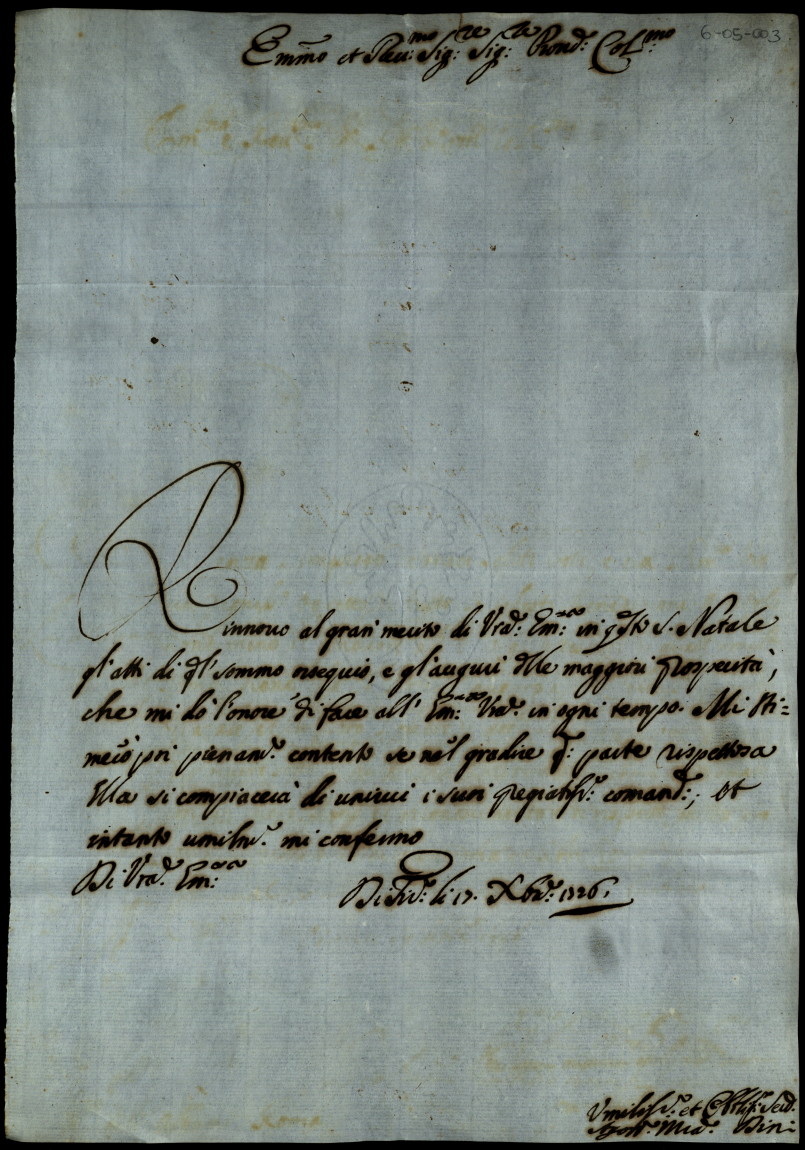 6-05-003
Emmo et Reu:mo Sig:re Sig:re Prond: Col:mo
Rinnovo al gran merito di Vrad: Em:za in qsto S. Natale
gl'atti di ql sommo ossequio, e gl'auguri dlle maggiori prosperità,
che mi dò l'onore di fare all' Em:za Vrad: in ogni tempo. Mi sti=
merò poi pienamt: contento se nel gradire q: parte rispettosa
Ella si compiacerà di unirvi i suoi pregiatiss: comand:; et
intanto umilmt: mi confermo
Di Vrad: Em:za
Di li 17. Xbr: 1726.
Umiliss: et Obbligss: Serd:
Bini